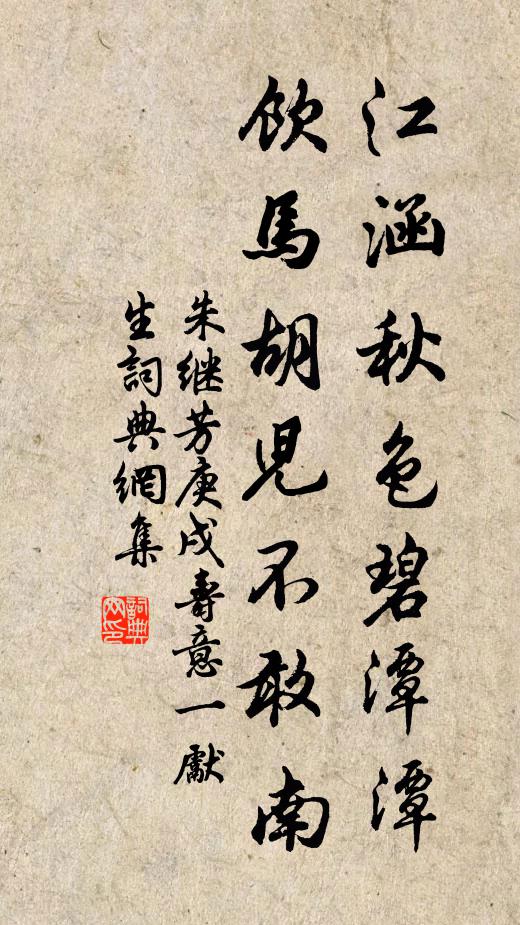 江涵秋色碧潭潭
飲馬胡児不敢南
朱继芳庚戌壽意一獻
生詞典網集
詞典网印